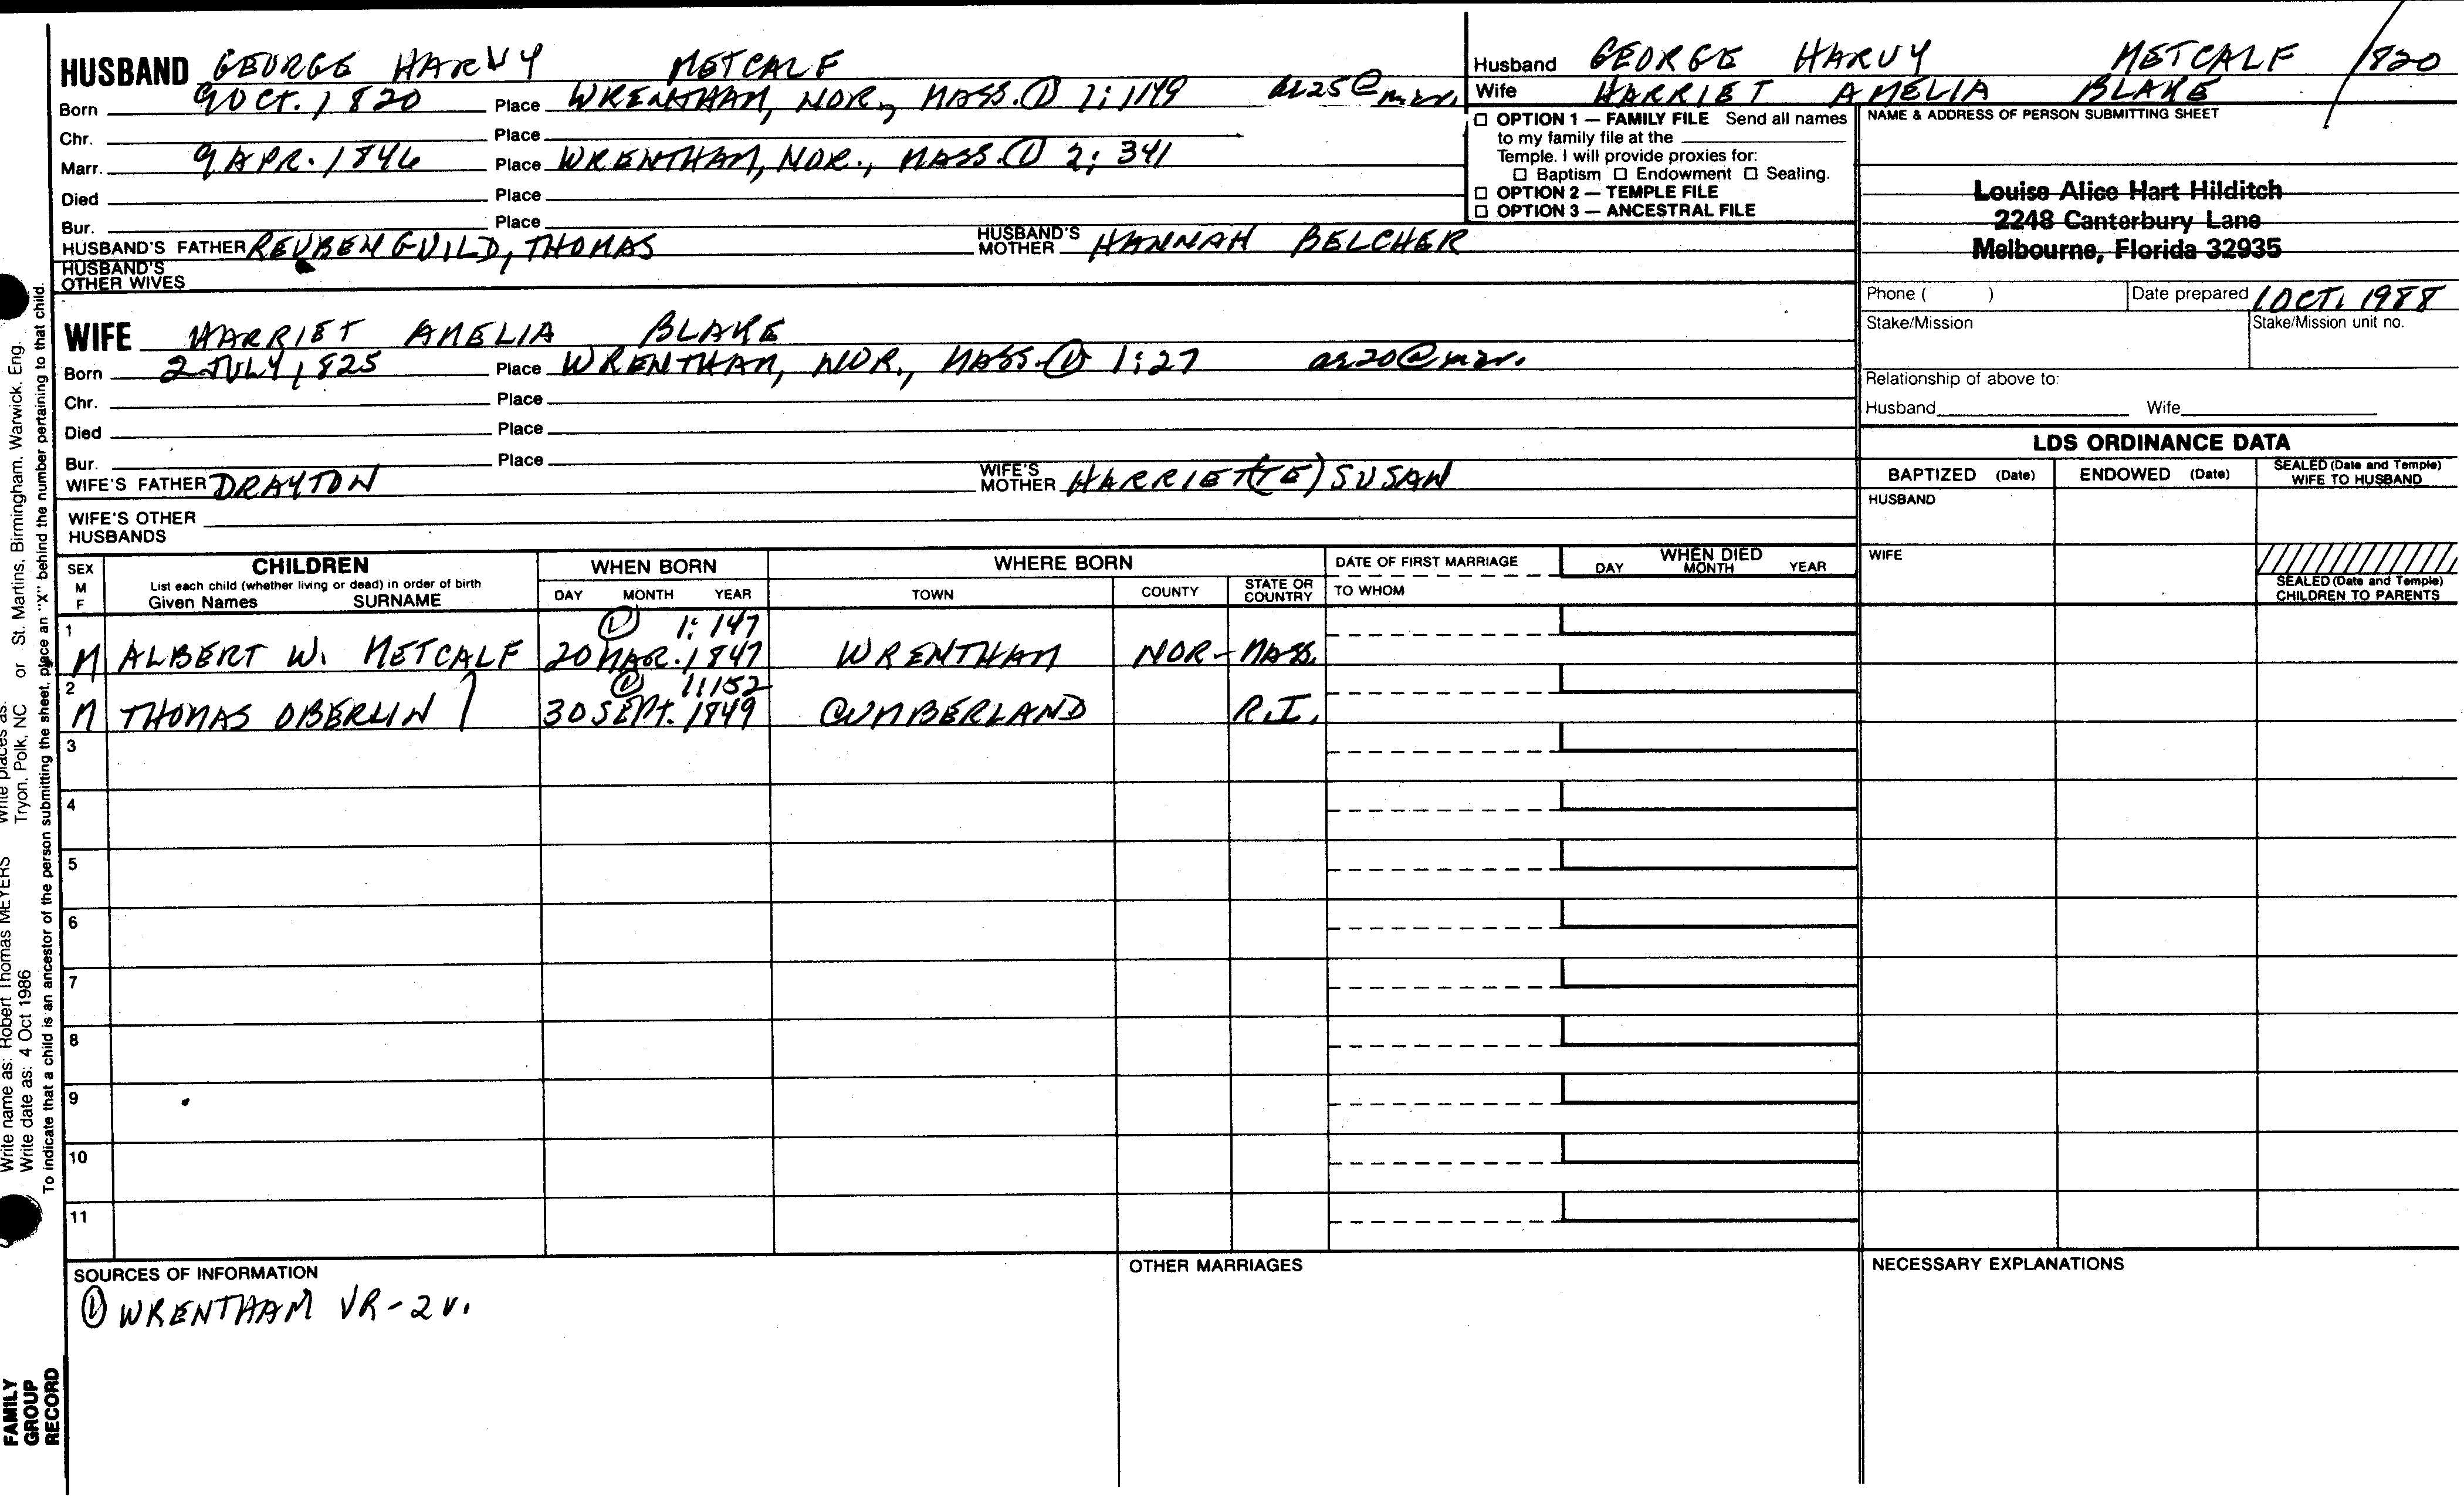 HUSBAND GEORGE HARVY METCALF
Born 9 OCT. 1820 Place WRENTHAM, NOR., MASS. ① 1:149 ae 25 @ mar.
Chr. Place
Marr. 9 APR. 1846 Place WRENTHAM, NOR., MASS. ① 2:341
Died Place
Bur. Place
HUSBAND'S FATHER REUBEN GUILD, THOMAS HUSBAND'S MOTHER HANNAH BELCHER
HUSBAND'S OTHER WIVES
WIFE HARRIET AMELIA BLAKE
Born 2 JULY 1825 Place WRENTHAM, NOR., MASS. ① 1:27 ae 20 @ mar.
Chr. Place
Died Place
Bur. Place
WIFE'S FATHER DRAYTON WIFE'S MOTHER HARRIET(TE) SUSAN
WIFE'S OTHER HUSBANDS
Husband GEORGE HARVY METCALF 1820
Wife HARRIET AMELIA BLAKE
☐ OPTION 1 — FAMILY FILE Send all names
to my family file at the
Temple. I will provide proxies for:
☐ Baptism ☐ Endowment ☐ Sealing.
☐ OPTION 2 — TEMPLE FILE
☐ OPTION 3 — ANCESTRAL FILE
NAME & ADDRESS OF PERSON SUBMITTING SHEET
Louise Alice Hart Hilditch
2248 Canterbury Lane
Melbourne, Florida 32935
Phone ( ) Date prepared 1 OCT. 1988
Stake/Mission Stake/Mission unit no.
Relationship of above to:
Husband Wife
LDS ORDINANCE DATA
BAPTIZED (Date) ENDOWED (Date) SEALED (Date and Temple) WIFE TO HUSBAND
HUSBAND
WIFE
SEALED (Date and Temple) CHILDREN TO PARENTS
SEX M F
CHILDREN
List each child (whether living or dead) in order of birth
Given Names SURNAME
WHEN BORN
DAY MONTH YEAR
WHERE BORN
TOWN COUNTY STATE OR COUNTRY
DATE OF FIRST MARRIAGE
TO WHOM
WHEN DIED
DAY MONTH YEAR
① 1:147
1 M ALBERT W. METCALF 20 MAR. 1847 WRENTHAM NOR- MASS.
① 1:152
2 M THOMAS OBERLIN 30 SEPT. 1849 CUMBERLAND R.I.
3
4
5
6
7
8
9
10
11
SOURCES OF INFORMATION
① WRENTHAM VR-2 v.
OTHER MARRIAGES
NECESSARY EXPLANATIONS
Write name as: Robert Thomas MEYERS Write places as: Tryon, Polk, NC or St. Martins, Birmingham, Warwick, Eng.
Write date as: 4 Oct 1986
To indicate that a child is an ancestor of the person submitting the sheet, place an "X" behind the number pertaining to that child.
FAMILY
GROUP
RECORD